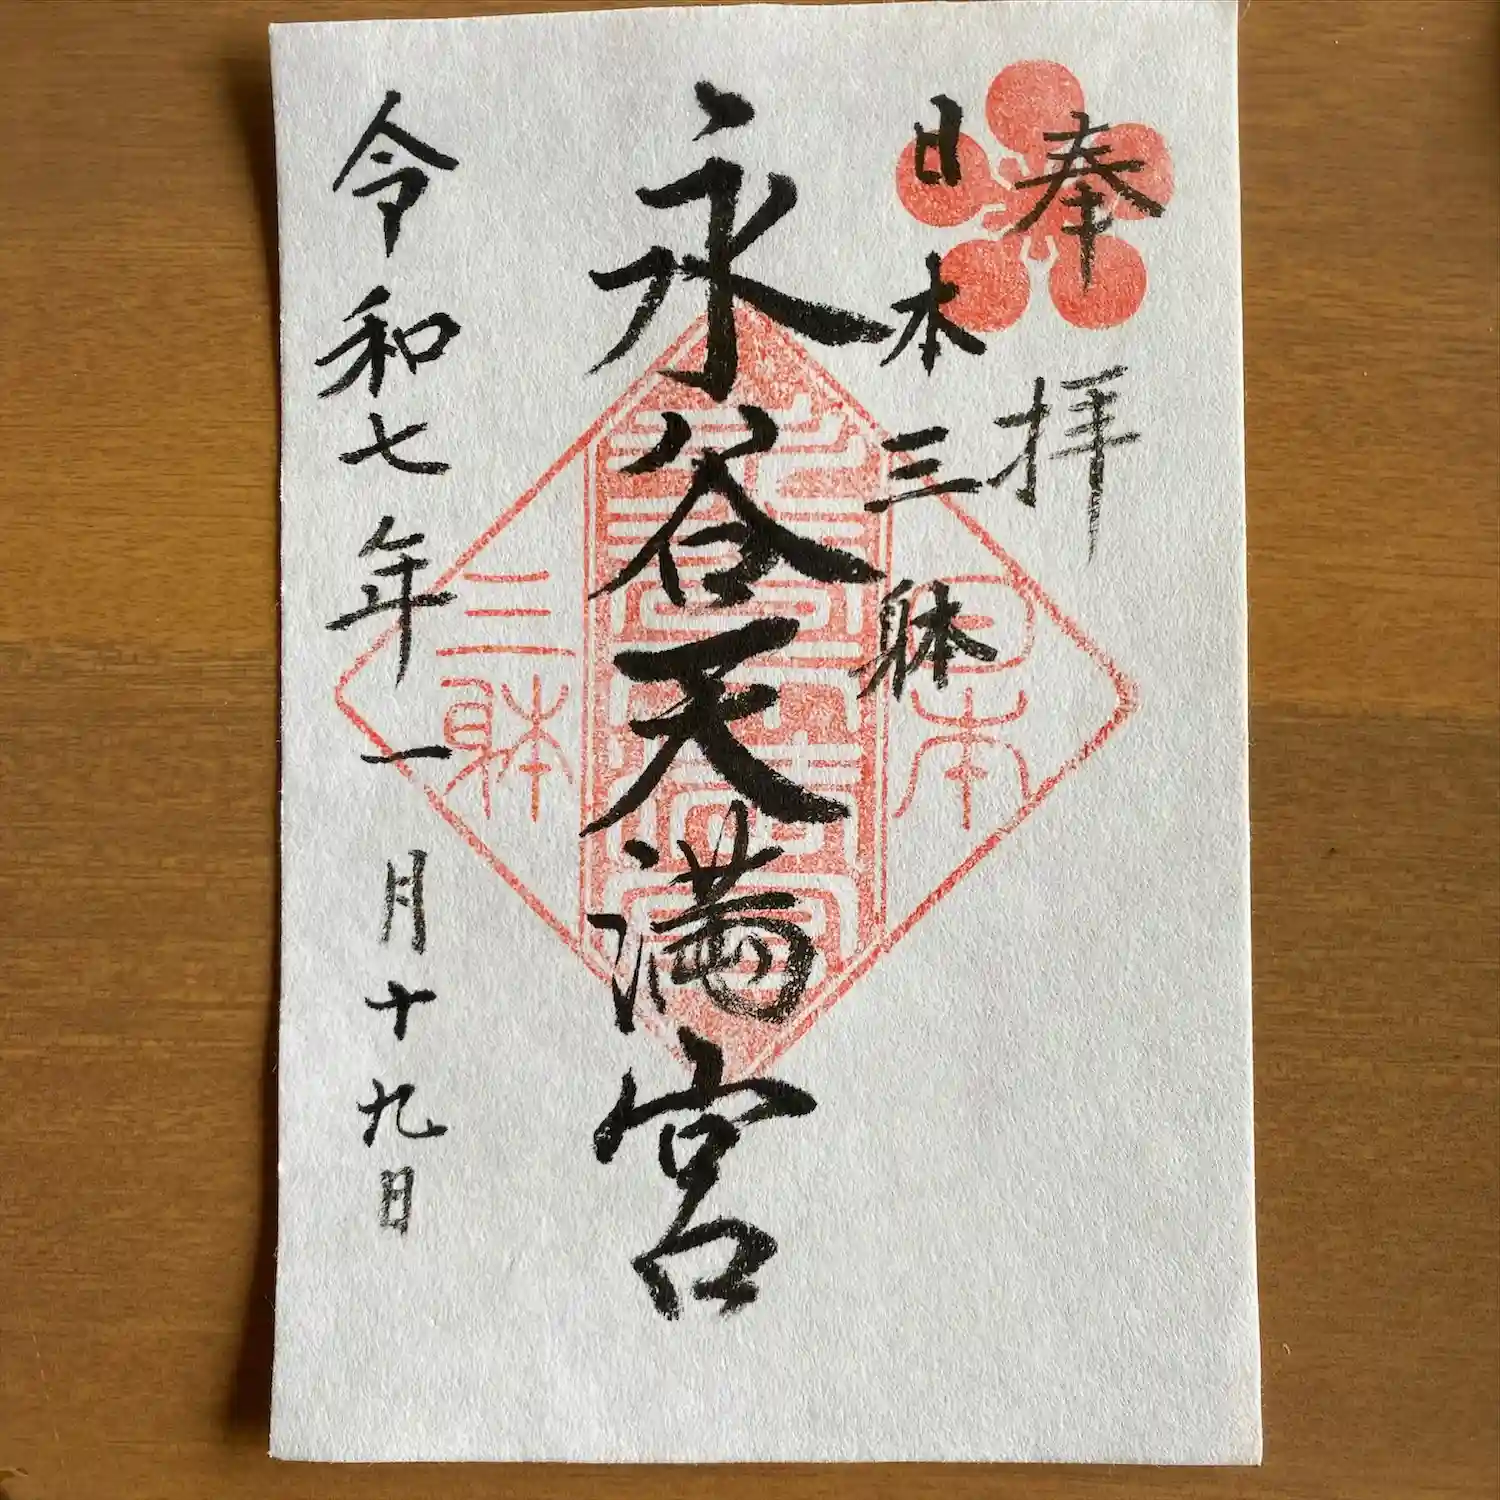 奉拝
日本三躰
永谷天満宮
令和七年一月十九日
日本
三躰